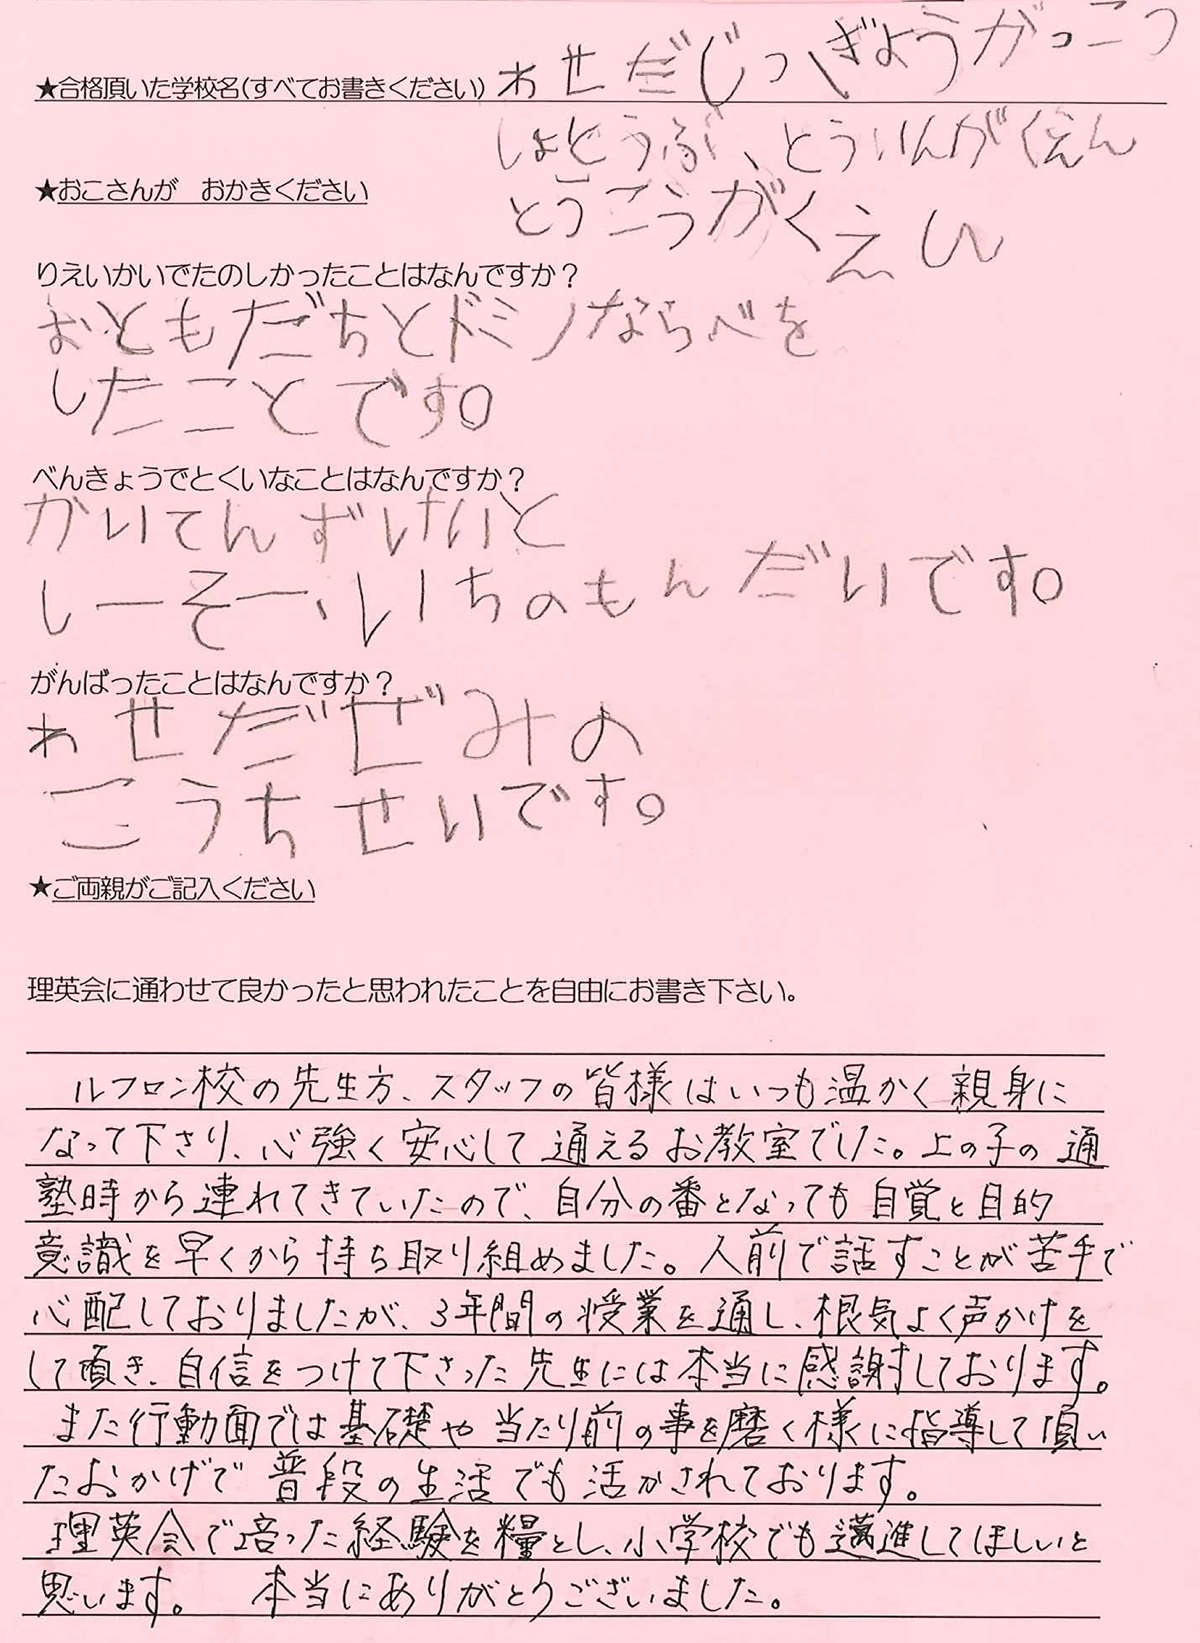 ★合格頂いた学校名(すべてお書きください) わせだじつぎょうがっこう
しょとうぶ、とういんがくえん
★おこさんが おかきください
とうこうがくえん
りえいかいでたのしかったことはなんですか？
おともだちとドミノならべを
したことです。
べんきょうでとくいなことはなんですか？
かいてんずけいと
しーそー、いちのもんだいです。
がんばったことはなんですか？
わせだぜみの
こうちせいです。
★ご両親がご記入ください
理英会に通わせて良かったと思われたことを自由にお書き下さい。
ルフロン校の先生方、スタッフの皆様はいつも温かく親身に
なって下さり、心強く安心して通えるお教室でした。上の子の通
塾時から連れてきていたので、自分の番となっても自覚と目的
意識を早くから持ち取り組めました。人前で話すことが苦手で
心配しておりましたが、3年間の授業を通し、根気よく声かけを
して頂き、自信をつけて下さった先生には本当に感謝しております。
また行動面では基礎や当たり前の事を磨く様に指導して頂い
たおかげで普段の生活でも活かされております。
理英会で培った経験を糧とし、小学校でも邁進してほしいと
思います。 本当にありがとうございました。